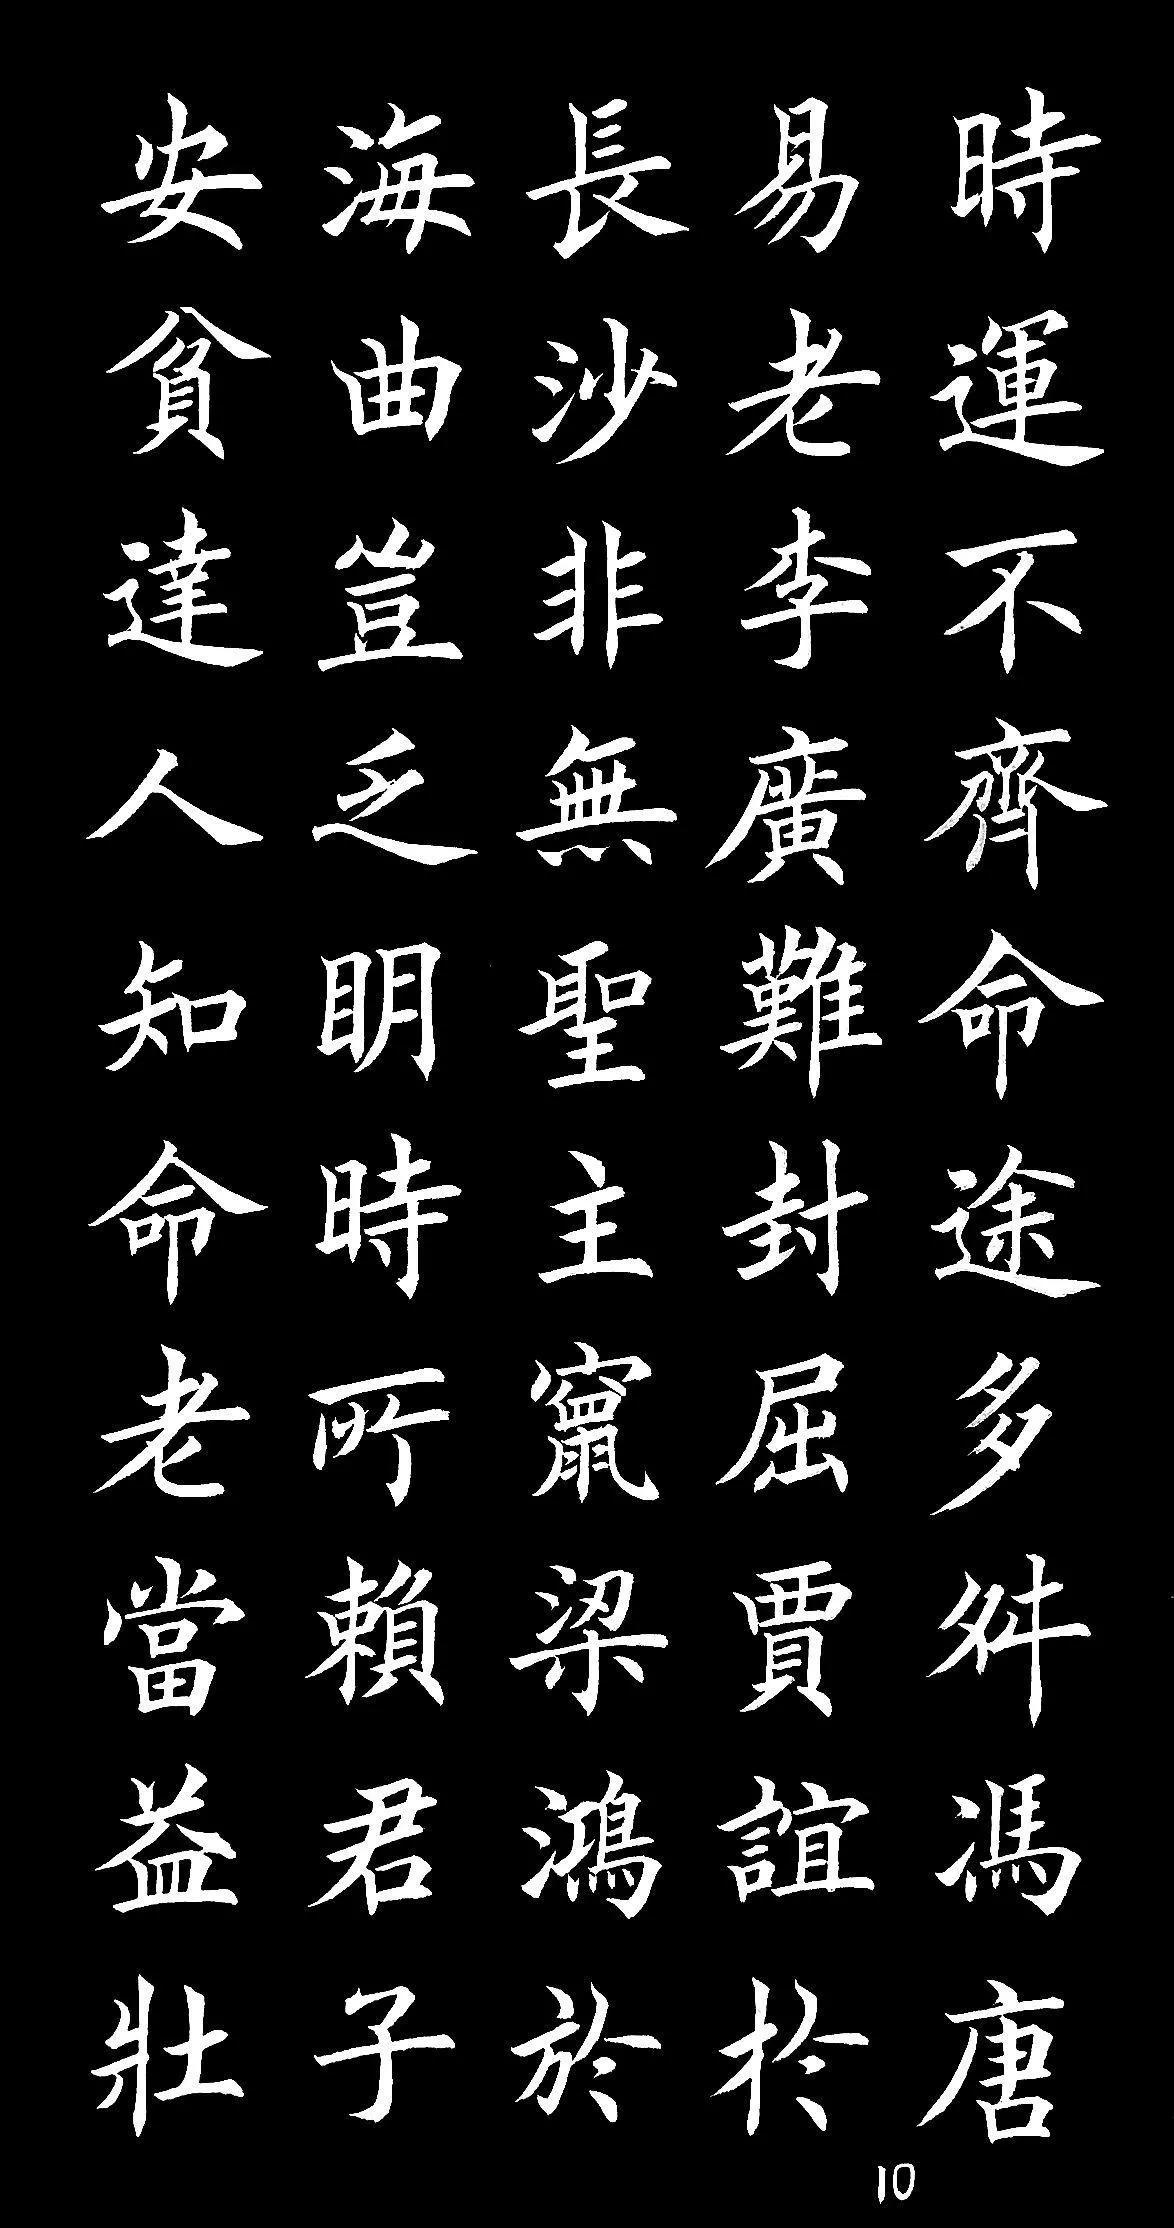 時運不齊命途多舛馮唐
易老李廣難封屈賈誼於
長沙非無聖主竄梁鴻於
海曲豈乏明時所賴君子
安貧達人知命老當益壯
10